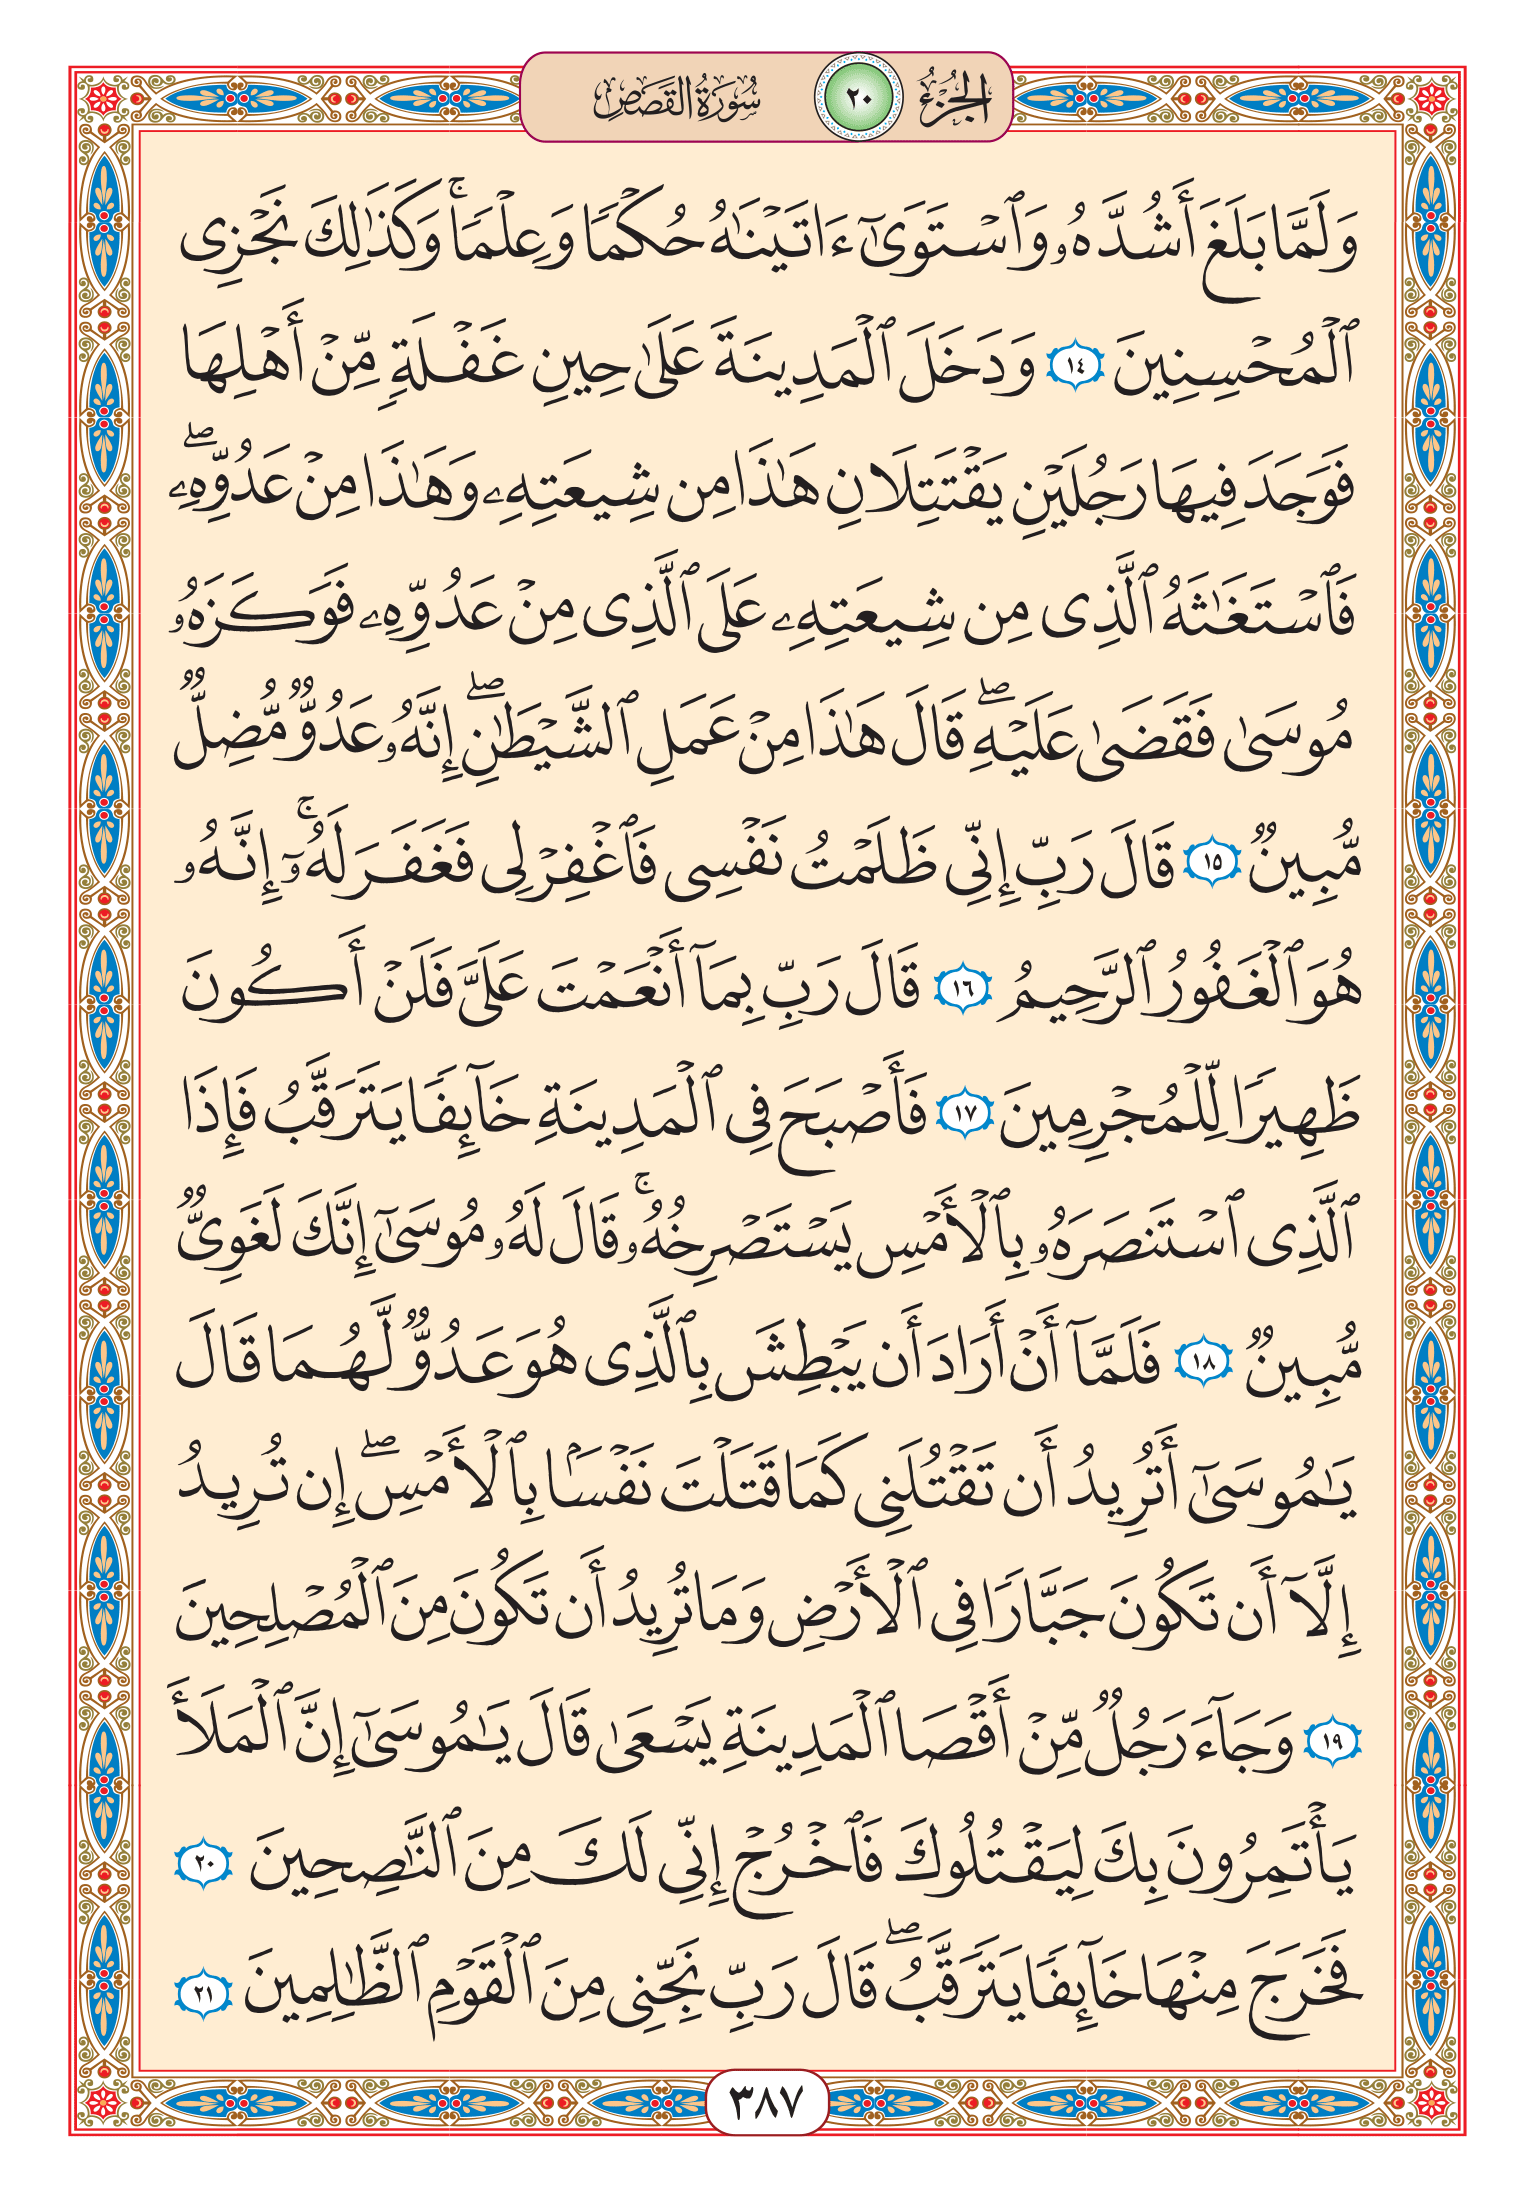 الجزء ٢٠ سورة القصص
وَلَمَّا بَلَغَ أَشُدَّهُۥ وَٱسۡتَوَىٰٓ ءَاتَيۡنَٰهُ حُكۡمٗا وَعِلۡمٗاۚ وَكَذَٰلِكَ نَجۡزِي
ٱلۡمُحۡسِنِينَ ١٤ وَدَخَلَ ٱلۡمَدِينَةَ عَلَىٰ حِينِ غَفۡلَةٖ مِّنۡ أَهۡلِهَا
فَوَجَدَ فِيهَا رَجُلَيۡنِ يَقۡتَتِلَانِ هَٰذَا مِن شِيعَتِهِۦ وَهَٰذَا مِنۡ عَدُوِّهِۦۖ
فَٱسۡتَغَٰثَهُ ٱلَّذِي مِن شِيعَتِهِۦ عَلَى ٱلَّذِي مِنۡ عَدُوِّهِۦ فَوَكَزَهُۥ
مُوسَىٰ فَقَضَىٰ عَلَيۡهِۖ قَالَ هَٰذَا مِنۡ عَمَلِ ٱلشَّيۡطَٰنِۖ إِنَّهُۥ عَدُوّٞ مُّضِلّٞ
مُّبِينٞ ١٥ قَالَ رَبِّ إِنِّي ظَلَمۡتُ نَفۡسِي فَٱغۡفِرۡ لِي فَغَفَرَ لَهُۥٓۚ إِنَّهُۥ
هُوَ ٱلۡغَفُورُ ٱلرَّحِيمُ ١٦ قَالَ رَبِّ بِمَآ أَنۡعَمۡتَ عَلَيَّ فَلَنۡ أَكُونَ
ظَهِيرٗا لِّلۡمُجۡرِمِينَ ١٧ فَأَصۡبَحَ فِي ٱلۡمَدِينَةِ خَآئِفٗا يَتَرَقَّبُ فَإِذَا
ٱلَّذِي ٱسۡتَنصَرَهُۥ بِٱلۡأَمۡسِ يَسۡتَصۡرِخُهُۥۚ قَالَ لَهُۥ مُوسَىٰٓ إِنَّكَ لَغَوِيّٞ
مُّبِينٞ ١٨ فَلَمَّآ أَنۡ أَرَادَ أَن يَبۡطِشَ بِٱلَّذِي هُوَ عَدُوّٞ لَّهُمَا قَالَ
يَٰمُوسَىٰٓ أَتُرِيدُ أَن تَقۡتُلَنِي كَمَا قَتَلۡتَ نَفۡسَۢا بِٱلۡأَمۡسِۖ إِن تُرِيدُ
إِلَّآ أَن تَكُونَ جَبَّارٗا فِي ٱلۡأَرۡضِ وَمَا تُرِيدُ أَن تَكُونَ مِنَ ٱلۡمُصۡلِحِينَ
١٩ وَجَآءَ رَجُلٞ مِّنۡ أَقۡصَا ٱلۡمَدِينَةِ يَسۡعَىٰ قَالَ يَٰمُوسَىٰٓ إِنَّ ٱلۡمَلَأَ
يَأۡتَمِرُونَ بِكَ لِيَقۡتُلُوكَ فَٱخۡرُجۡ إِنِّي لَكَ مِنَ ٱلنَّٰصِحِينَ ٢٠
فَخَرَجَ مِنۡهَا خَآئِفٗا يَتَرَقَّبُۖ قَالَ رَبِّ نَجِّنِي مِنَ ٱلۡقَوۡمِ ٱلظَّٰلِمِينَ ٢١
٣٨٧